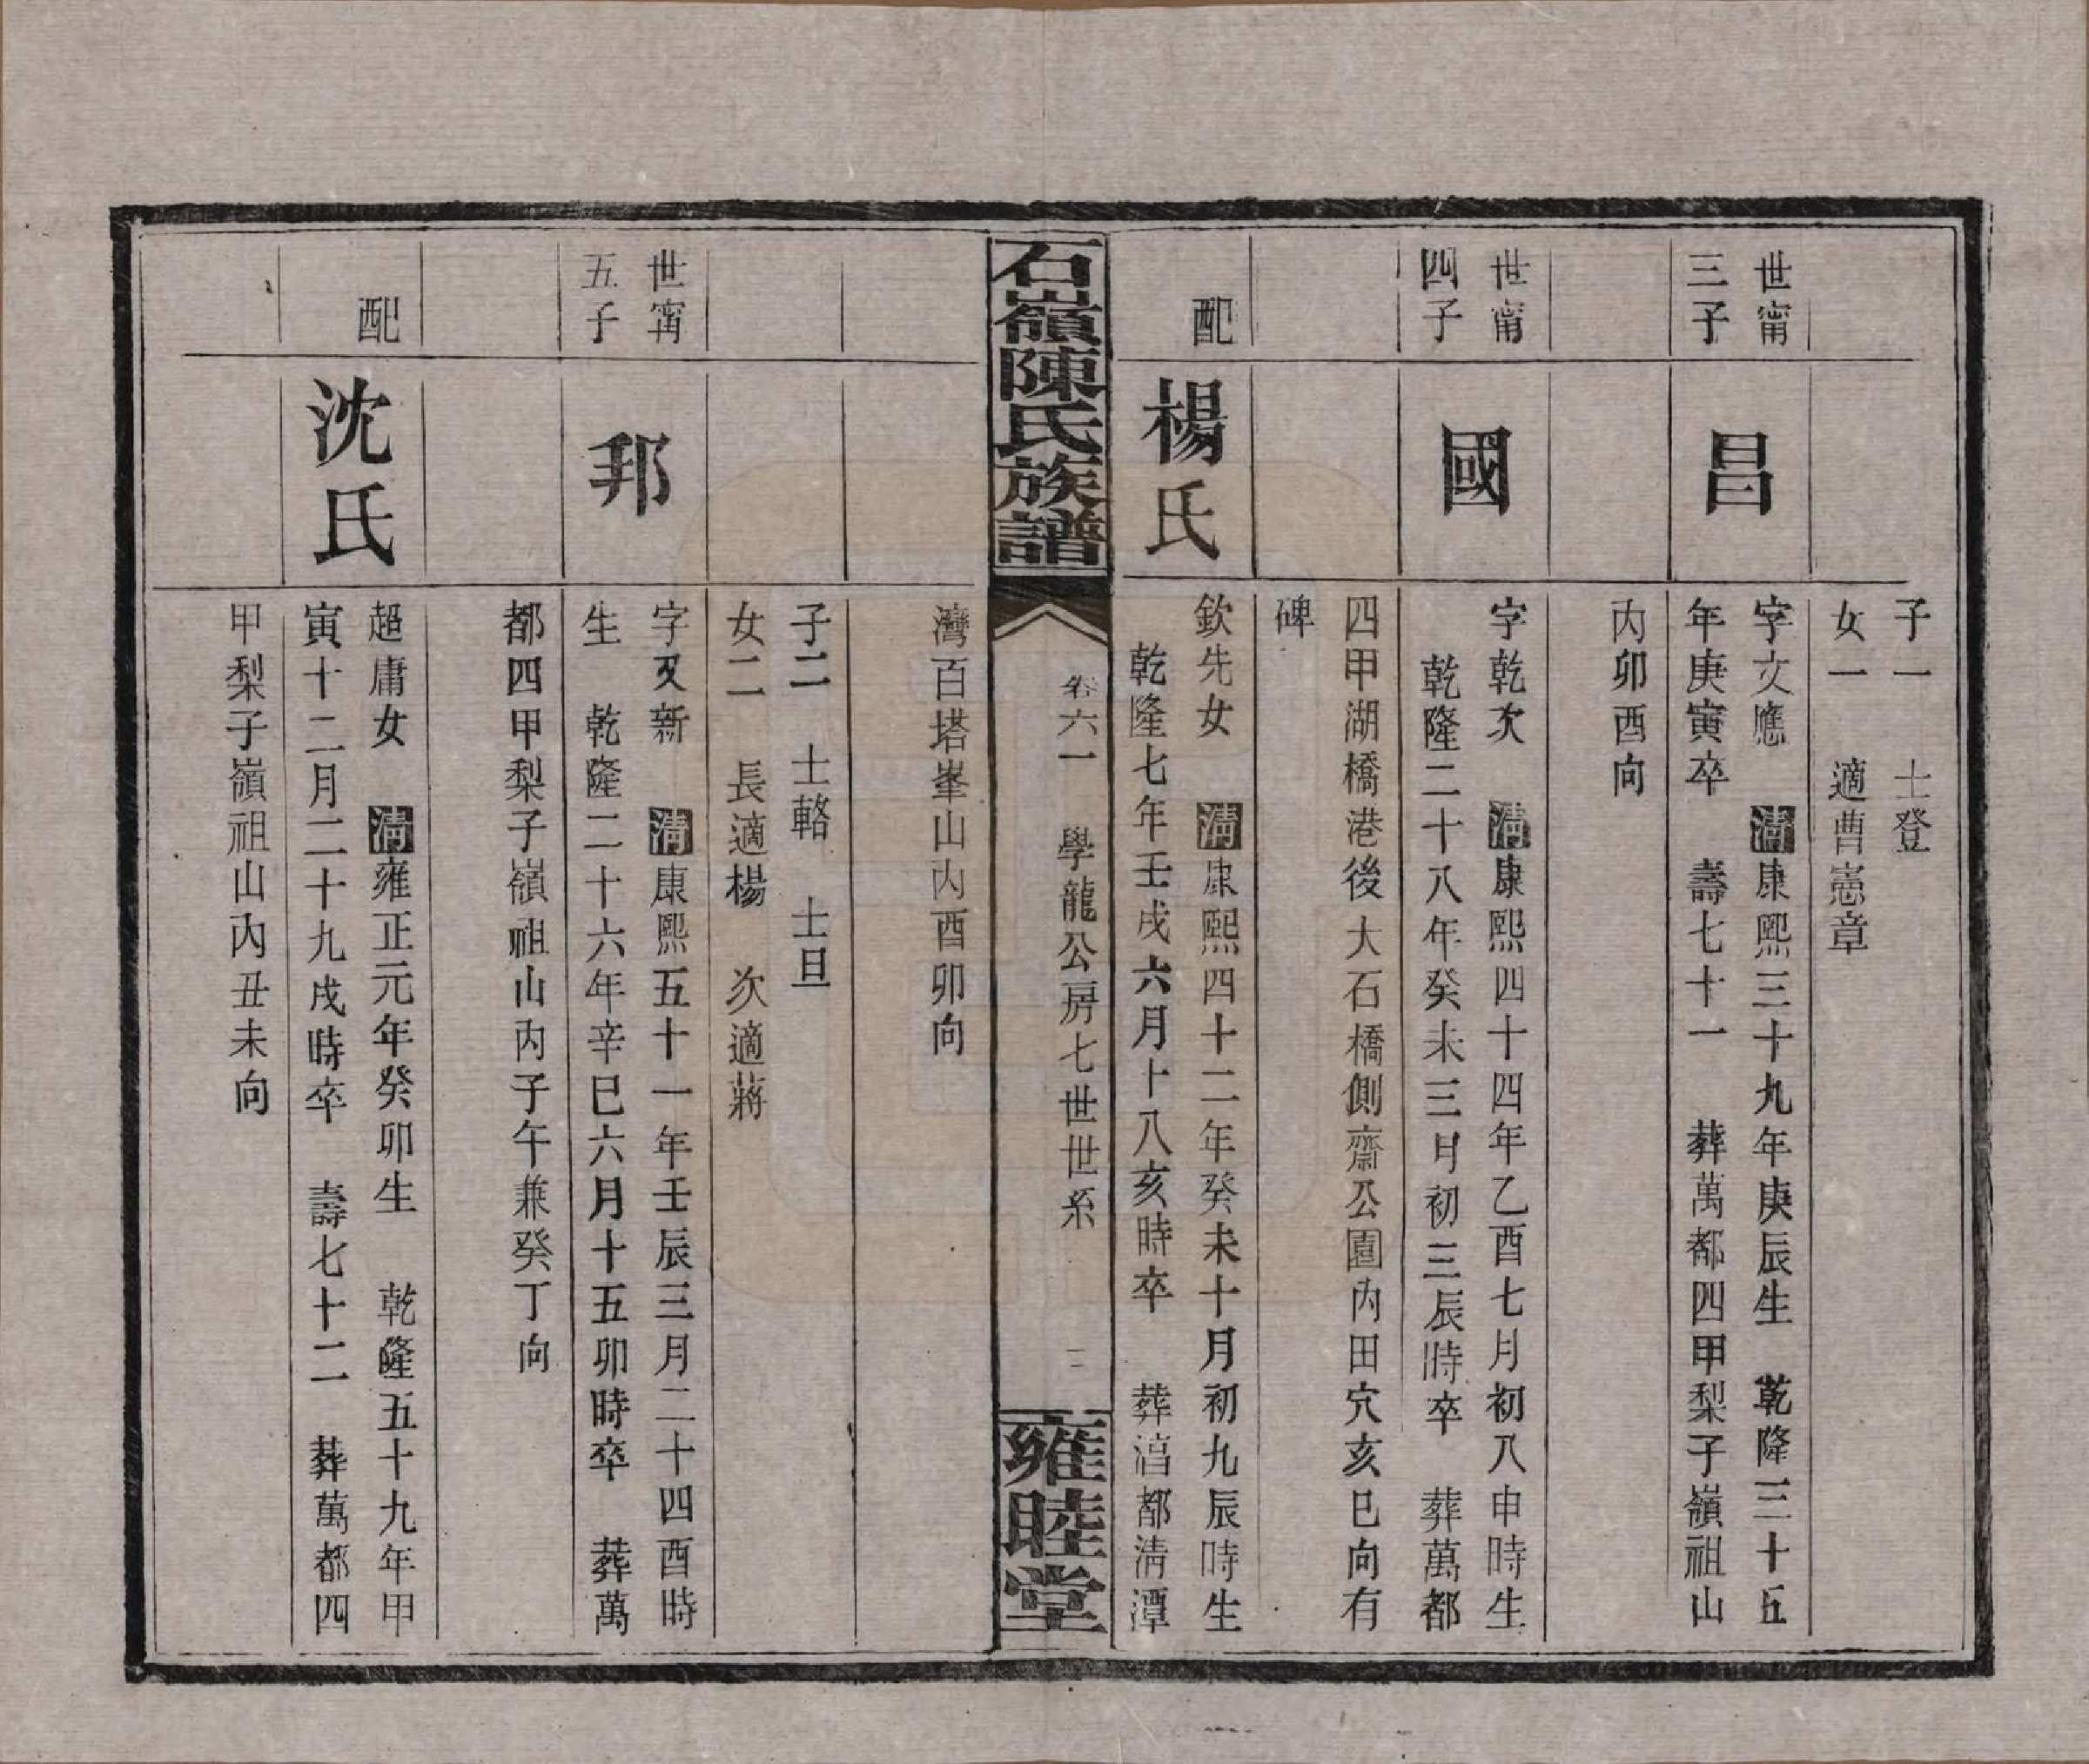 子一　士登
女一　適曹憲章
世甯
三子
昌
字文應　清康熙三十九年庚辰生　乾隆三十五
年庚寅卒　壽七十一　葬萬都四甲梨子嶺祖山
內卯酉向
世甯
四子
國
字乾次　清康熙四十四年乙酉七月初八申時生
乾隆二十八年癸未三月初三辰時卒　葬萬都
四甲湖橋港後大石橋側齋公園內田穴亥巳向有
碑
配
楊氏
欽先女　清康熙四十二年癸未十月初九辰時生
乾隆七年壬戌六月十八亥時卒　葬淯都清潭
石嶺陳氏族譜
卷六一　學龍公房七世世系
二
雍睦堂
灣百塔峯山內酉卯向
子二　士輅　士旦
女二　長適楊　次適蔣
世甯
五子
邦
字又新　清康熙五十一年壬辰三月二十四酉時
生　乾隆二十六年辛巳六月十五卯時卒　葬萬
都四甲梨子嶺祖山內子午兼癸丁向
配
沈氏
超庸女　清雍正元年癸卯生　乾隆五十九年甲
寅十二月二十九戌時卒　壽七十二　葬萬都四
甲梨子嶺祖山內丑未向